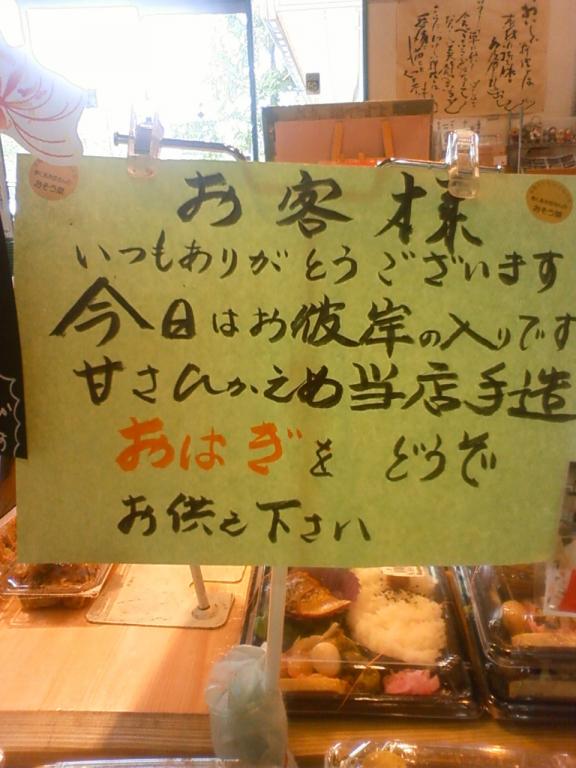 お客様
いつもありがとうございます
今日はお彼岸の入りです
甘さひかえめ当店手造
おはぎを どうぞ
お供え下さい
みそう菜
みそう菜